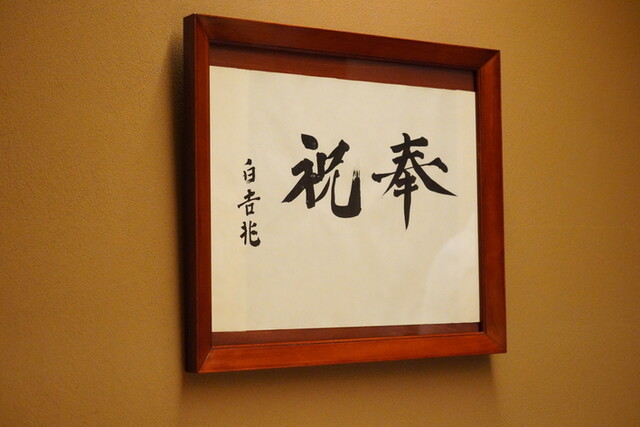 奉祝
白吉兆